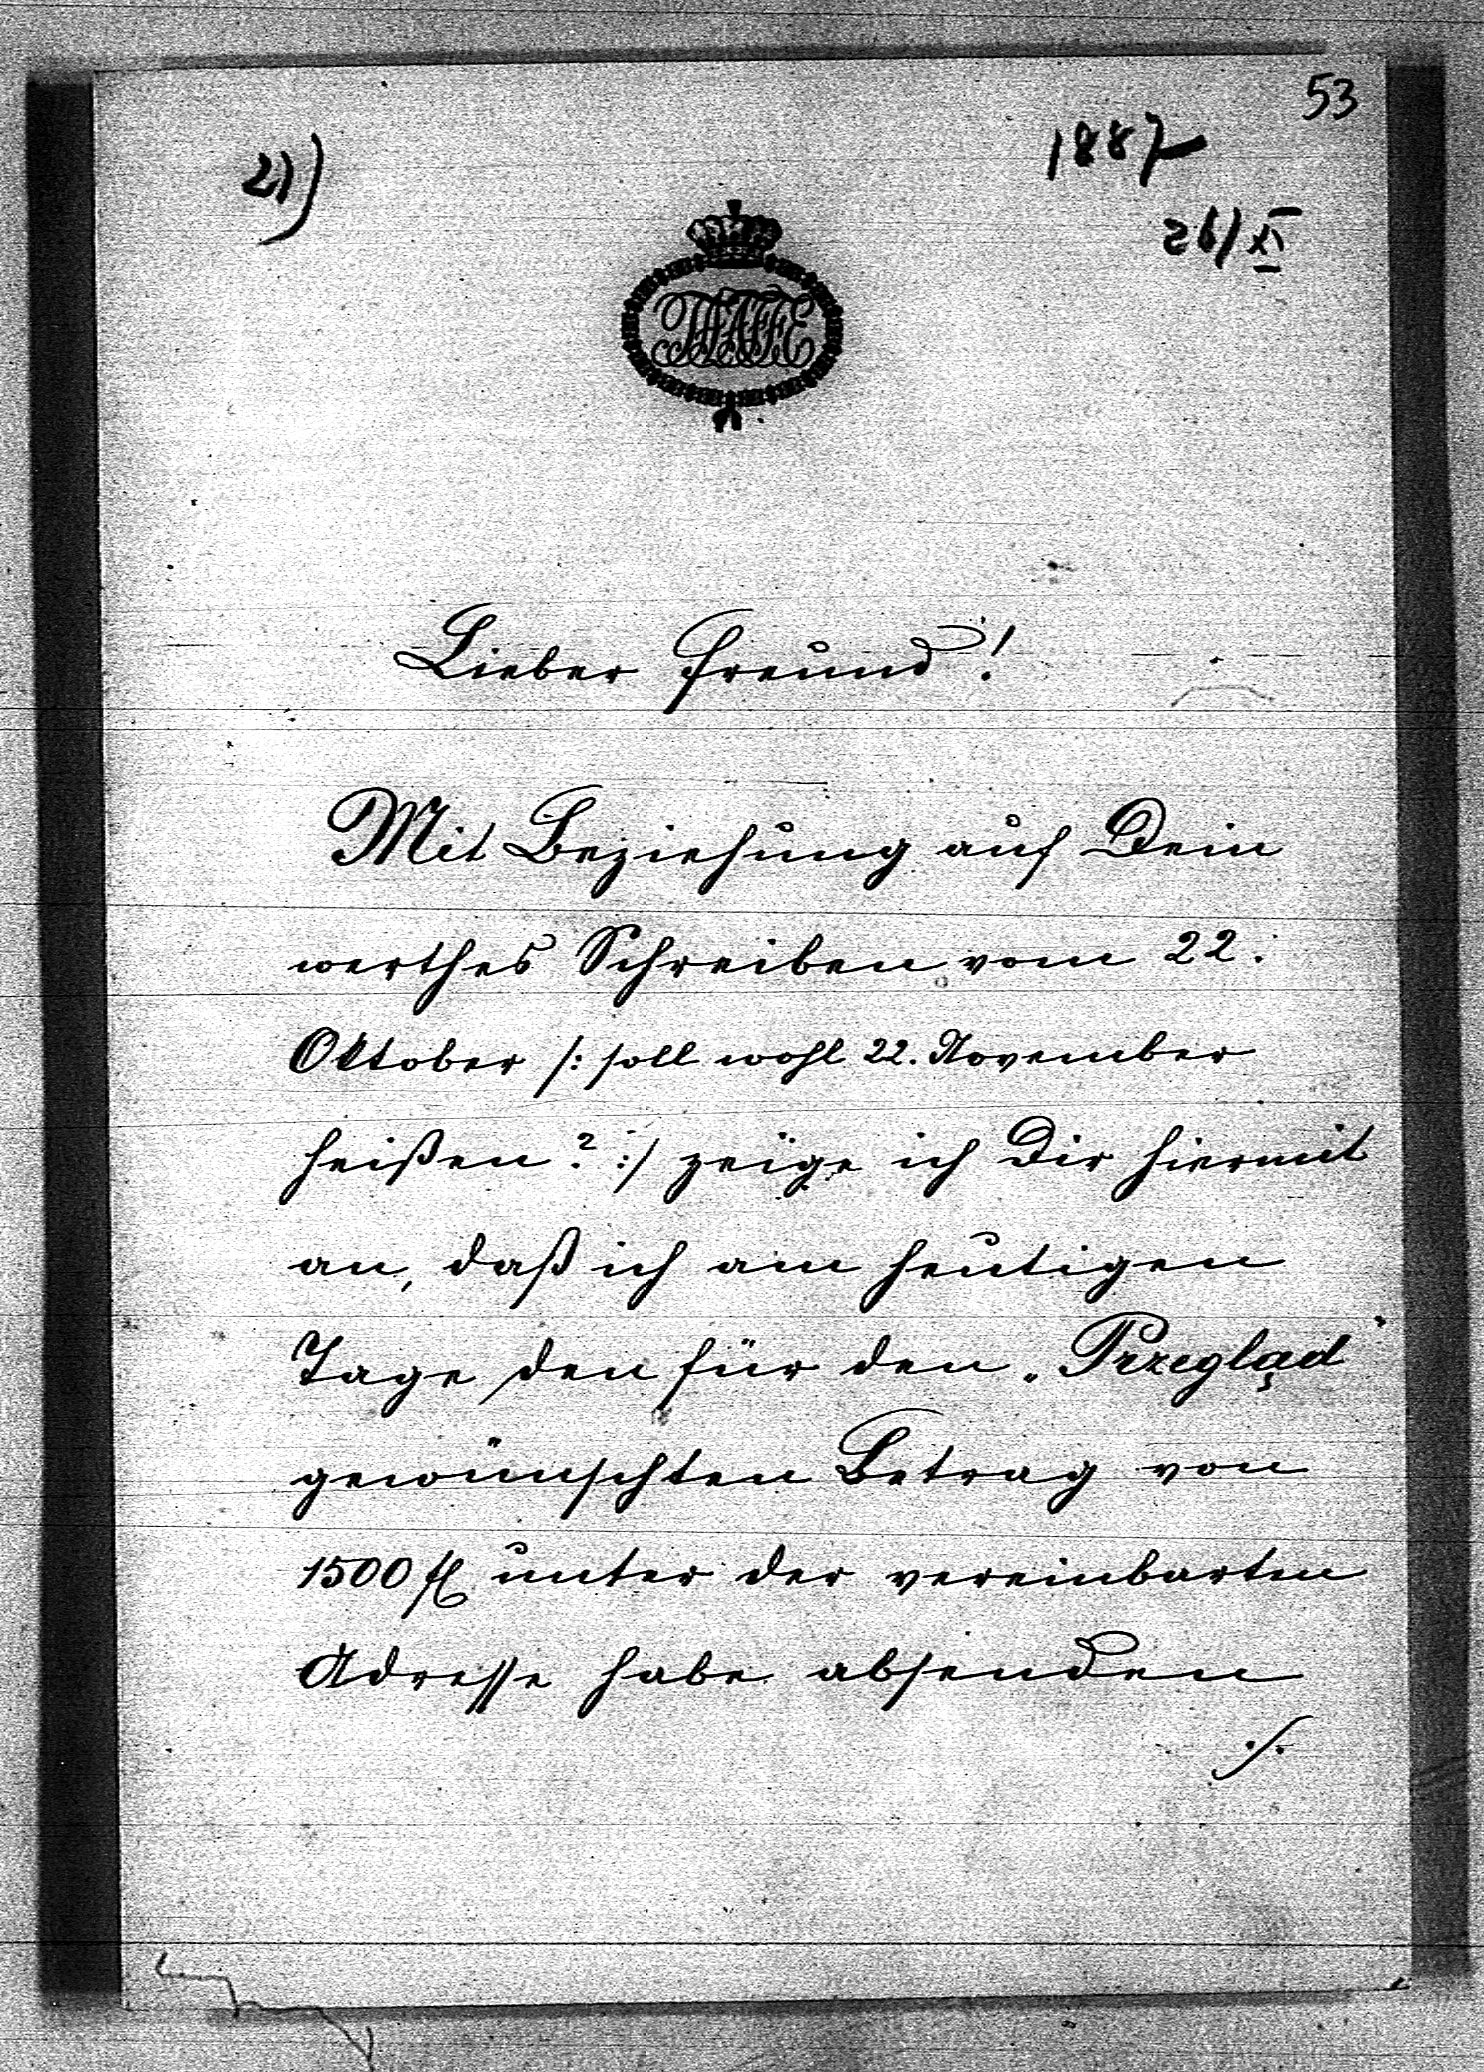 53
21)
1887
26/XI
TAAFFE
Lieber Freund!
Mit Beziehung auf Dein
werthes Schreiben vom 22.
Oktober /: soll wohl 22. November
heißen? :/ zeige ich Dir hiermit
an, daß ich am heutigen
Tage den für den „Przegląd"
gewünschten Betrag von
1500 fl unter der vereinbarten
Adresse habe absenden
./.